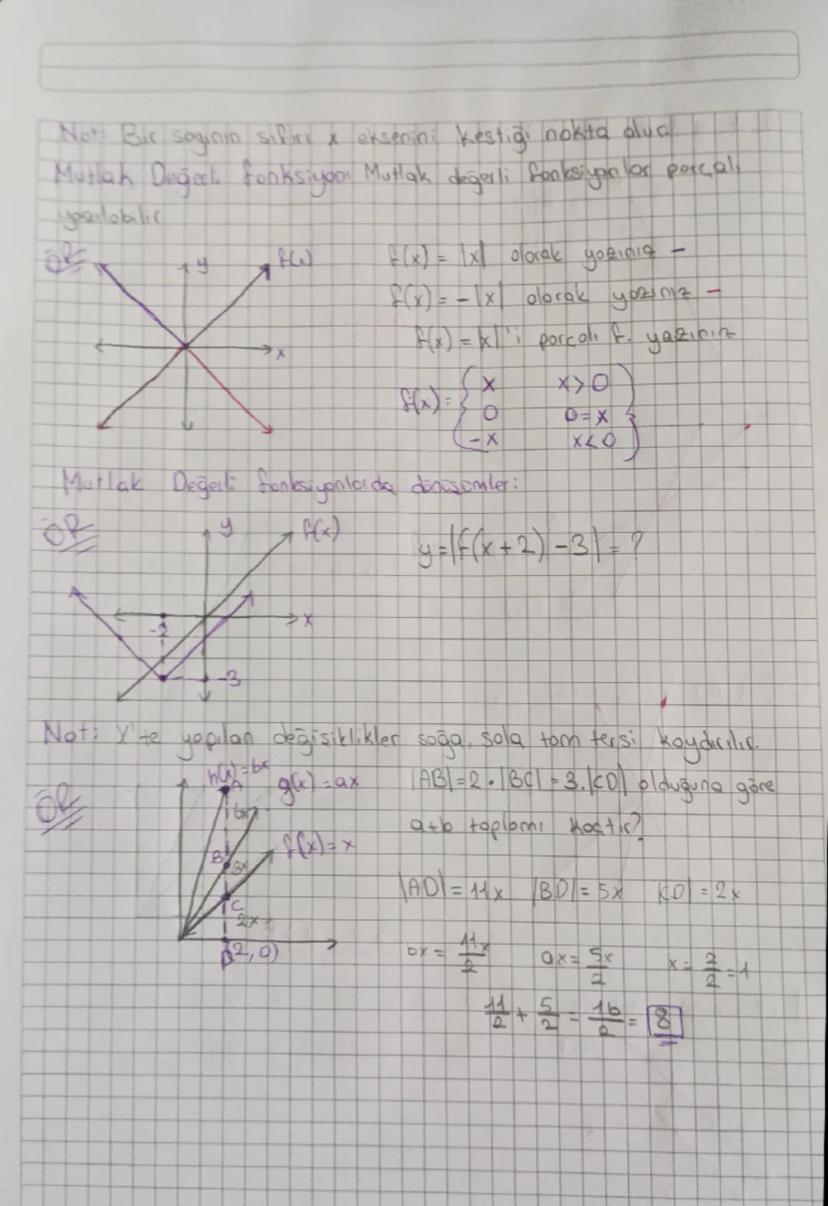 Not: Bir sayının sıfırı x eksenini kestiği nokta olur
Mutlak Değerli fonksiyon: Mutlak değerli fonksiyonlar parçalı
yazılabilir
ÖR
y
f(x)
x
f(x) = |x| olarak yazınız -
f(x) = -|x| olarak yazınız -
f(x) = |x|'i parçalı f. yazınız
f(x) = { x x>0
0 0=x
-x x<0 }
Mutlak Değerli fonksiyonlarda dönüşümler:
ÖR
y
f(x)
x
-2
-3
y=|f(x+2)-3|=?
Not: X'te yapılan değişiklikler sağa, sola tam tersi kaydırılır.
ÖR
h(x)=bx
g(x)=ax
f(x)=x
A
6x
B
3x
C
2x
D(2,0)
|AB|=2.|BC|=3.|CD| olduğuna göre
a+b toplamı kaçtır?
|AD|=11x |BD|=5x |CD|=2x
bx = 11x/2 ax = 5x/2 x = 2/2 = 1
11/2 + 5/2 = 16/2 = 8